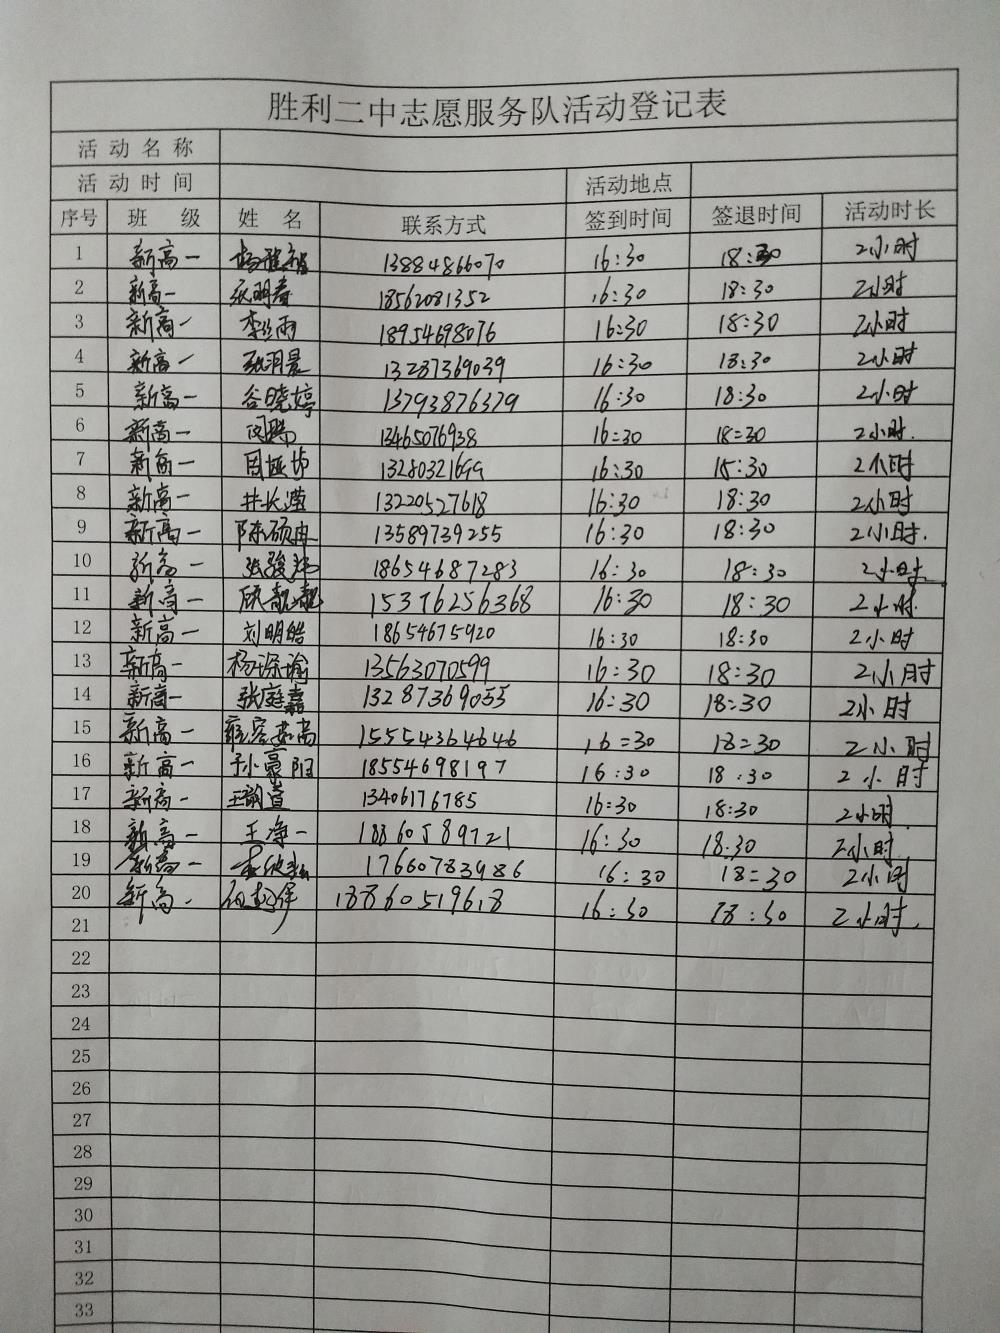 胜利二中志愿服务队活动登记表
活动名称
活动时间 活动地点
序号 班 级 姓 名 联系方式 签到时间 签退时间 活动时长
1 新高一 13884866070 16:30 18:30 2小时
2 新高一 张明春 18562081352 16:30 18:30 2小时
3 新高一 18954698076 16:30 18:30 2小时
4 新高一 张羽晨 13287369039 16:30 18:30 2小时
5 新高一 谷晓婷 13793876379 16:30 18:30 2小时
6 新高一 13465076938 16:30 18:30 2小时.
7 新高一 13280321699 16:30 15:30 2小时
8 新高一 井长滢 13220527618 16:30 18:30 2小时
9 新高一 陈硕冉 13589739255 16:30 18:30 2小时.
10 新高一 18654687283 16:30 18:30 2小时
11 新高一 顾靓靓 15376256368 16:30 18:30 2小时.
12 新高一 刘明皓 18654675920 16:30 18:30 2小时
13 新高一 杨琛瑜 13563070599 16:30 18:30 2小时
14 新高一 张庭嘉 13287369055 16:30 18:30 2小时
15 新高一 15554364646 16:30 18:30 2小时
16 新高一 18554698197 16:30 18:30 2小时
17 新高一 13406176785 16:30 18:30 2小时
18 新高一 王净一 18860589721 16:30 18:30 2小时
19 新高一 17660783986 16:30 18:30 2小时
20 新高一 18860519618 16:30 18:30 2小时.
21
22
23
24
25
26
27
28
29
30
31
32
33